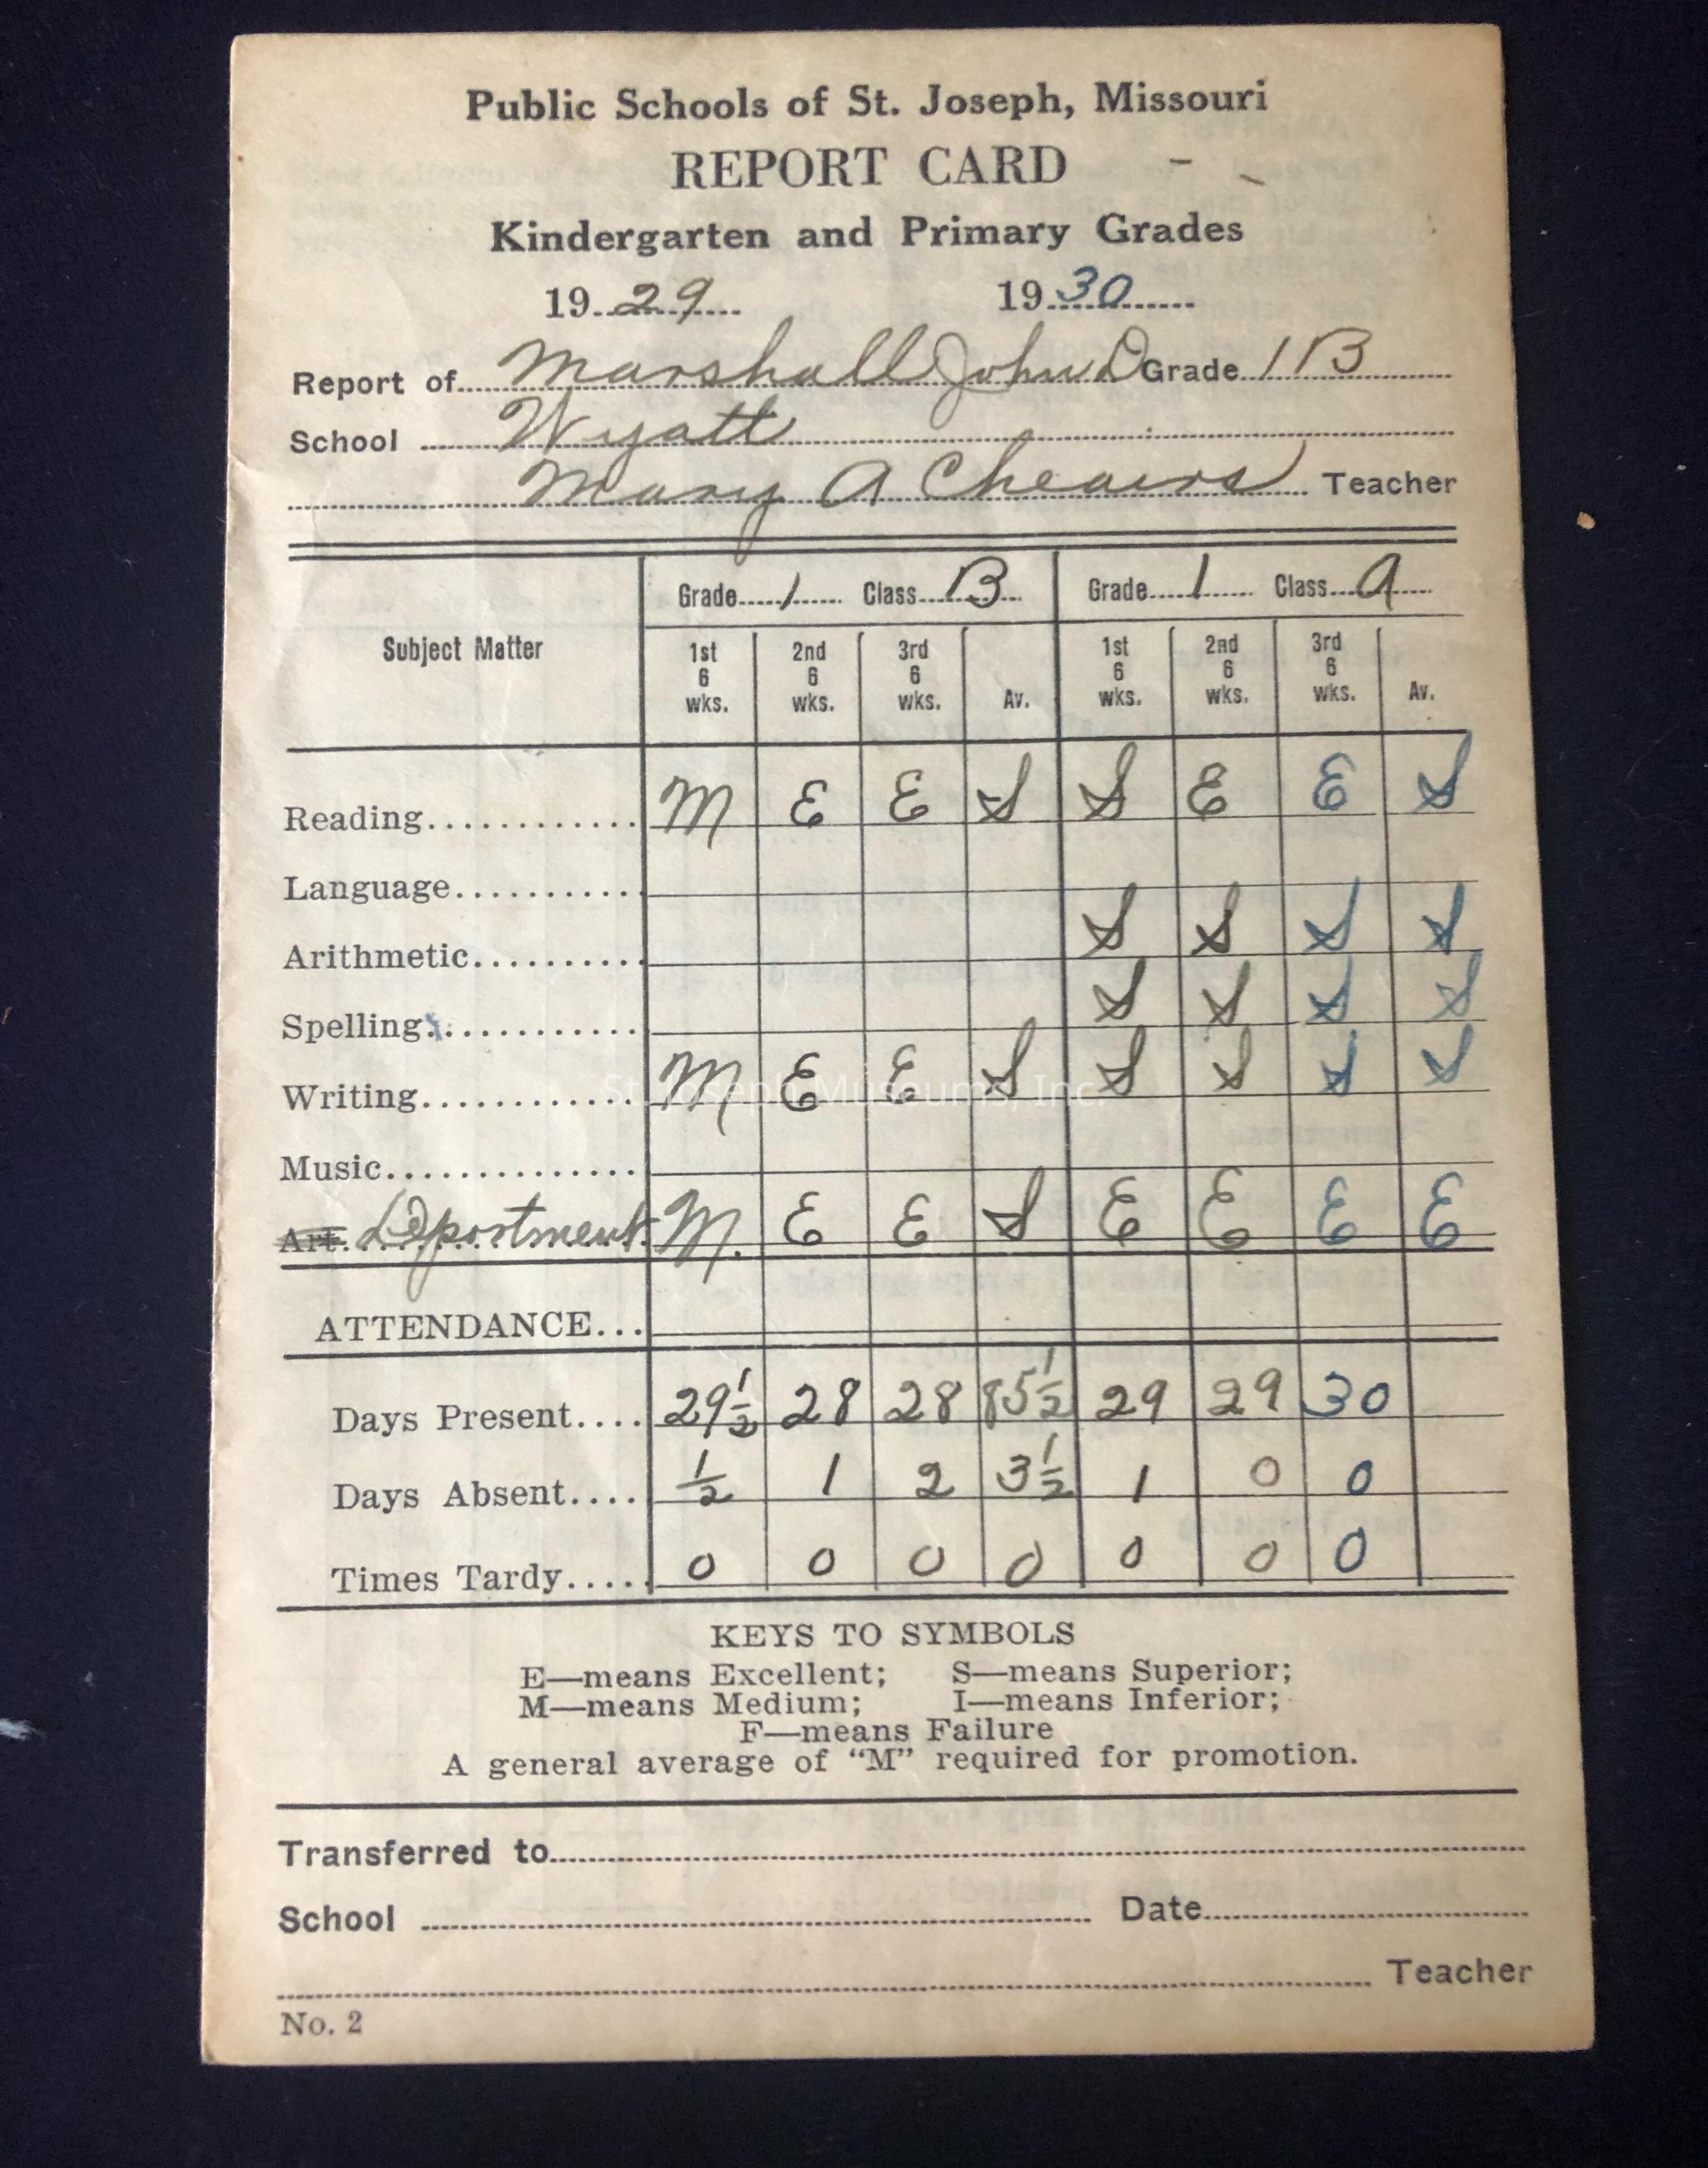 Public Schools of St. Joseph, Missouri
REPORT CARD
Kindergarten and Primary Grades
19 29 19 30
Report of Marshall John D Grade 1B
School Wyatt
Mary A Cheairs Teacher
Grade 1 Class B Grade 1 Class A
Subject Matter 1st 6 wks. 2nd 6 wks. 3rd 6 wks. Av. 1st 6 wks. 2nd 6 wks. 3rd 6 wks. Av.
Reading M E E S S E E S
Language
Arithmetic S S S S
Spelling S S S S
Writing M E E S S S S S
St. Joseph Museums, Inc.
Music
Art. Deportment M. E E S E E E E
ATTENDANCE
Days Present 29½ 28 28 85½ 29 29 30
Days Absent ½ 1 2 3½ 1 0 0
Times Tardy 0 0 0 0 0 0 0
KEYS TO SYMBOLS
E—means Excellent; S—means Superior;
M—means Medium; I—means Inferior;
F—means Failure
A general average of “M” required for promotion.
Transferred to
School Date
Teacher
No. 2